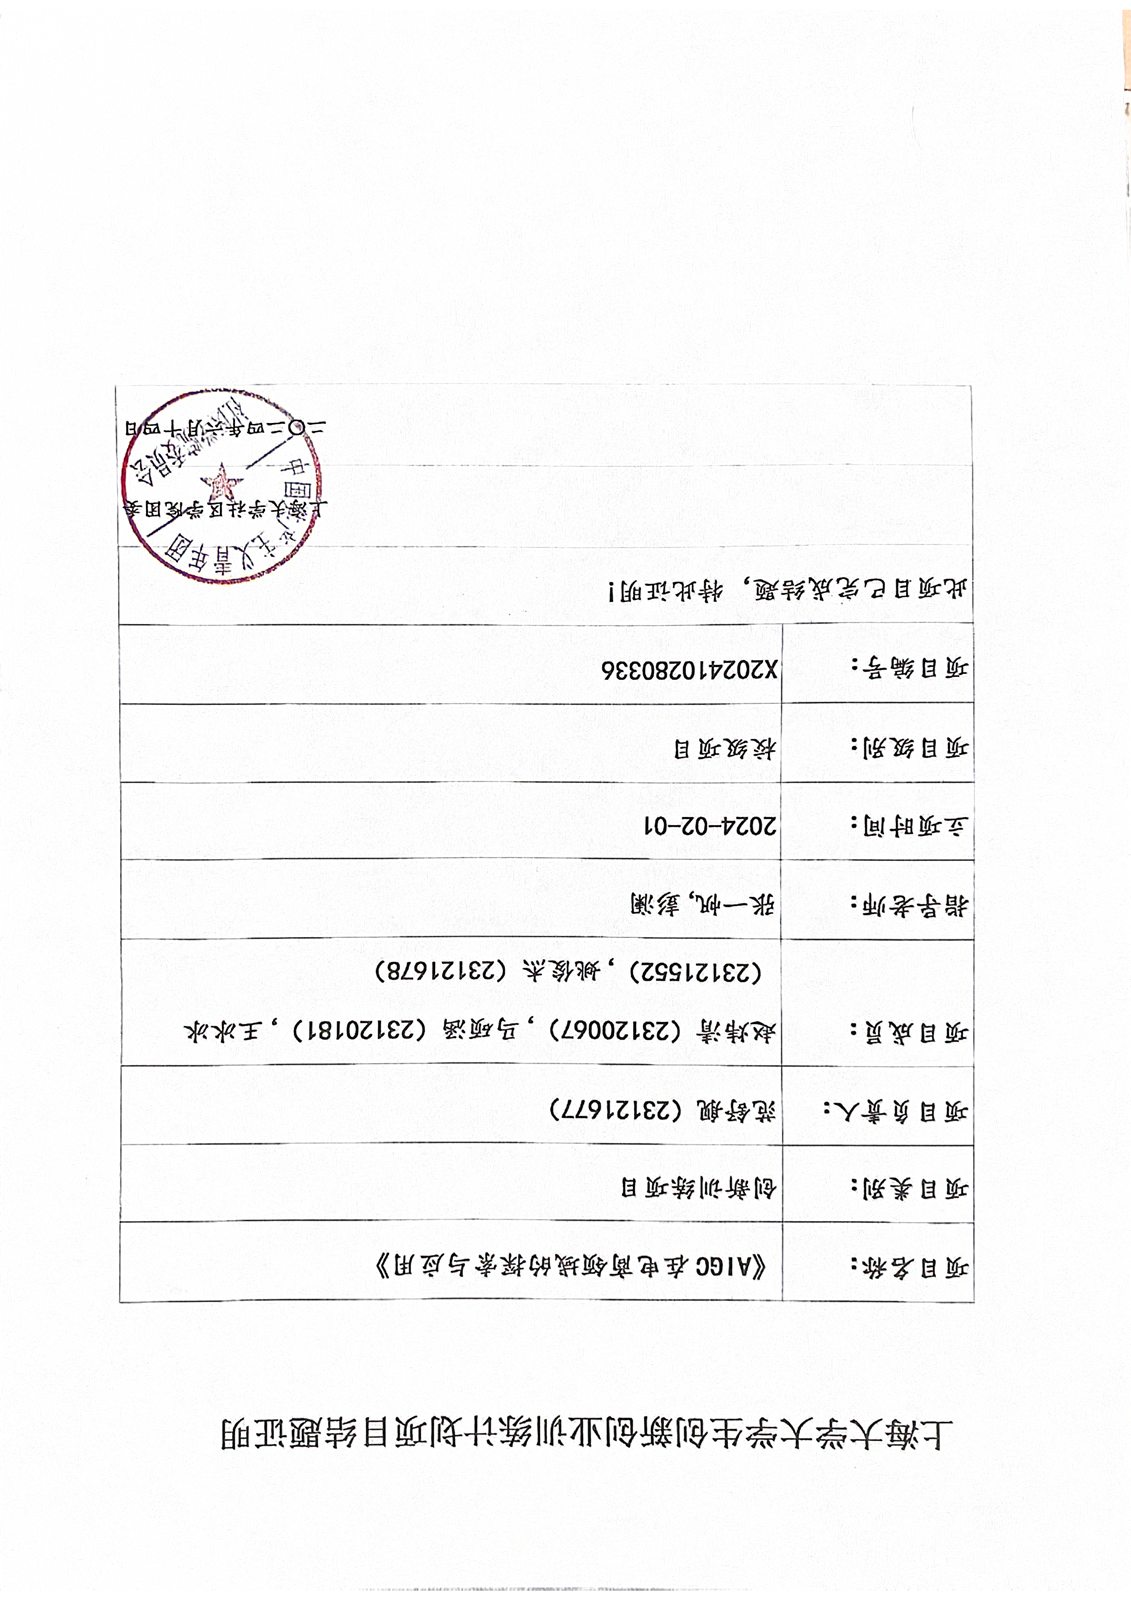 上海大学大学生创新创业训练计划项目结题证明
项目名称： 《AIGC在电商领域的探索与应用》
项目类别： 创新训练项目
项目负责人： 范舒舰（23121677）
项目成员： 赵炜清（23120067），马硕涵（23120181），王冰冰
（23121552），姚俊杰（23121678）
指导老师： 张一帆，彭澜
立项时间： 2024-02-01
项目级别： 校级项目
项目编号： X202410280336
此项目已完成结题，特此证明！
上海大学社区学院团委
二〇二四年六月十四日
中国共产主义青年团
委员会